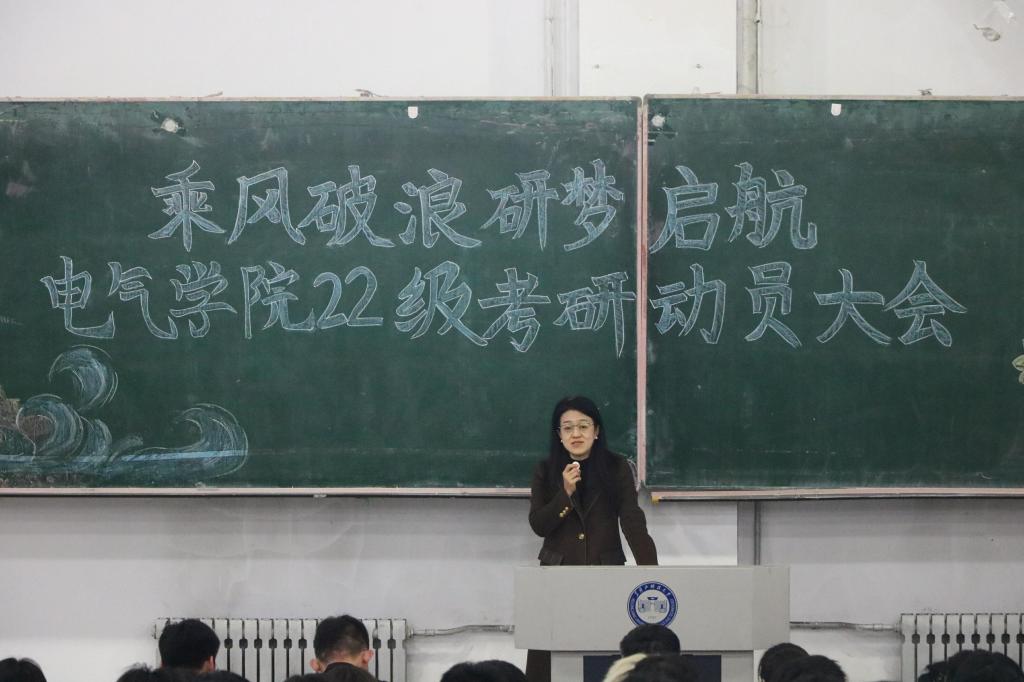 乘风破浪研梦启航
电气学院22级考研动员大会